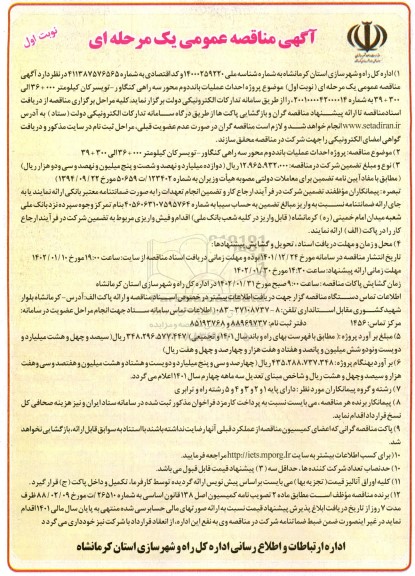 آگهی مناقصه عمومی یک مرحله ای
نوبت اول
۱) اداره کل راه و شهرسازی استان کرمانشاه به شماره شناسه ملی ۱۴۰۰۰۲۵۹۲۲۰ و کد اقتصادی به شماره ۴۱۱۳۸۷۵۷۶۵۶۵ در نظر دارد آگهی
مناقصه عمومی یک مرحله ای ( نوبت اول ) موضوع پروژه احداث عملیات باند دوم محور سه راهی کنگاور - تویسرکان کیلومتر ۰۰۰+۳۶ الی
۳۰۰+۳۹ به شماره ۲۰۰۱۰۰۰۰۴۳۰۰۰۰۱۴ را از طریق سامانه تدارکات الکترونیکی دولت برگزار نماید. کلیه مراحل برگزاری مناقصه از دریافت
اسناد مناقصه تا ارائه پیشنهاد مناقصه گران و بازگشایی پاکت ها از طریق درگاه سامانه تدارکات الکترونیکی دولت ( ستاد ) به آدرس
www.setadiran.ir انجام خواهد شد و لازم است مناقصه گران در صورت عدم عضویت قبلی، مراحل ثبت نام در سایت مذکور و دریافت
گواهی امضای الکترونیکی را جهت شرکت در مناقصه محقق سازند.
۲) موضوع مناقصه: پروژه احداث عملیات باند دوم محور سه راهی کنگاور - تویسرکان کیلومتر ۰۰۰+۳۶ الی ۳۰۰+۳۹
۳) نوع و مبلغ تضمین شرکت در مناقصه: ۱۲.۹۶۵.۹۳۲.۰۰۰ ریال ( دوازده میلیارد و نهصد و شصت و پنج میلیون و نهصد و سی و دو هزار ریال)
( مطابق با مفاد آیین نامه تضمین برای معاملات دولتی مصوبه هیأت وزیران به شماره ۱۲۳۴۰۲/ت ۵۰۶۵۹ مورخ ۱۳۹۴/۰۹/۲۲)
تبصره: پیمانکاران مؤظفند تضمین شرکت در فرآیند ارجاع کار و تضمین انجام تعهدات را به صورت ضمانتنامه معتبر بانکی ارائه نمایند یا به
جای ارائه ضمانتنامه نسبت به واریز مبالغ تضمین به حساب سیبا به شماره ۴۰۵۶۰۶۳۱۰۷۵۹۵۷۶۴ بنام تمرکز وجوه سپرده نزد بانک ملی
شعبه میدان امام خمینی (ره) کرمانشاه ( قابل واریز در کلیه شعب بانک ملی) اقدام و فیش واریزی مربوط به تضمین شرکت در فرآیند ارجاع
کار را در پاکت ( الف) ارائه نمایند.
۴) محل و زمان و مهلت دریافت اسناد ، تحویل و گشایش پیشنهادها:
تاریخ انتشار مناقصه در سامانه مورخ ۱۴۰۱/۱۲/۲۴ بوده و مهلت زمانی دریافت اسناد مناقصه از سایت: ساعت ۱۹:۰۰ مورخ ۱۴۰۲/۰۱/۱۰
مهلت زمانی ارائه پیشنهاد: ساعت ۱۴:۳۰ مورخ ۱۴۰۲/۰۱/۳۰
زمان گشایش پاکات مناقصه: ساعت ۹:۰۰ صبح مورخ ۱۴۰۲/۰۱/۳۱ در اداره کل راه و شهرسازی استان کرمانشاه
اطلاعات تماس دستگاه مناقصه گزار جهت دریافت اطلاعات بیشتر در خصوص اسناد مناقصه و ارائه پاکت الف: آدرس - کرمانشاه بلوار
شهید کشوری مقابل استانداری تلفن: ۸-۳۷۱۰۸۷۳۷-۰۸۳ ( اطلاعات تماس سامانه ستاد جهت انجام مراحل عضویت در سامانه:
مرکز تماس: ۱۴۵۶ دفتر ثبت نام: ۸۸۹۶۹۷۳۷ و ۸۵۱۹۳۷۶۸
۵) مبلغ برآورد پروژه: ( مطابق با فهرست بهای راه و باند سال ۱۴۰۱ و تجمیعی ) ۳۴۸.۲۹۶.۵۷۷.۴۴۷ ریال ( سیصد و چهل و هشت میلیارد و
دویست و نود و شش میلیون و پانصد و هفتاد و هفت هزار و چهارصد و چهل و هفت ریال)
۶) برآورد بهنگام پروژه: ۴۳۵.۲۸۸.۷۳۷.۳۴۸ ریال ( چهارصد و سی و پنج میلیارد و دویست و هشتاد و هشت میلیون و هفتصد و سی و هفت
هزار و سیصد و چهل و هشت ریال و شاخص مبنای تعدیل سه ماهه چهارم سال ۱۴۰۱ اعلام می گردد.
۷) رشته و گروه پیمانکاران مورد نظر : دارای پایه ۱ و ۲ و ۳ و ۴ و ۵ رشته راه و ترابری
۸) پیمانکار برنده هر مناقصه ، می بایست نسبت به پرداخت کارمزد فراخوان مذکور ثبت شده در سامانه ستاد ایران و نیز هزینه صحافی کل
نسخ قرارداد اقدام نماید.
۹) پاکت مناقصه گرانی که اعضای کمیسیون مناقصه از عملکرد قبلی آنها رضایت نداشته باشند با استناد به سوابق قابل ارائه ، بازگشایی نخواهد
شد.
۱۰) برای کسب اطلاعات بیشتر به سایت http://iets.mporg.ir مراجعه فرمایید.
۱۰) حد نصاب تعداد شرکت کننده ها، حداقل سه ( ۳ ) پیشنهاد قیمت قابل قبول می باشد.
۱۱) کلیه اوراق آنالیز قیمت( تجزیه بها ) می بایست بر اساس پیش نویس ارائه گردیده توسط کارفرما، تکمیل و داخل پاکت (ج) قرار گیرد.
۱۲) برنده مناقصه مؤظف است مطابق ماده ۲ تصویب نامه کمیسیون اصل ۱۳۸ قانون اساسی به شماره ۲۶۵۱۰/ت مورخ ۸۸/۰۲/۰۹ ظرف
مدت ۷ روز از تاریخ دریافت ابلاغ پذیرش پیشنهاد قیمت نسبت به ارائه صورتهای مالی حسابرسی شده منتهی به پایان سال مالی ۱۴۰۱ اقدام
نماید در غیر اینصورت ضمن ضبط ضمانتنامه شرکت در مناقصه وی به نفع این اداره، از انعقاد قرارداد با شرکت نیز خودداری می گردد
اداره ارتباطات و اطلاع رسانی اداره کل راه و شهرسازی استان کرمانشاه